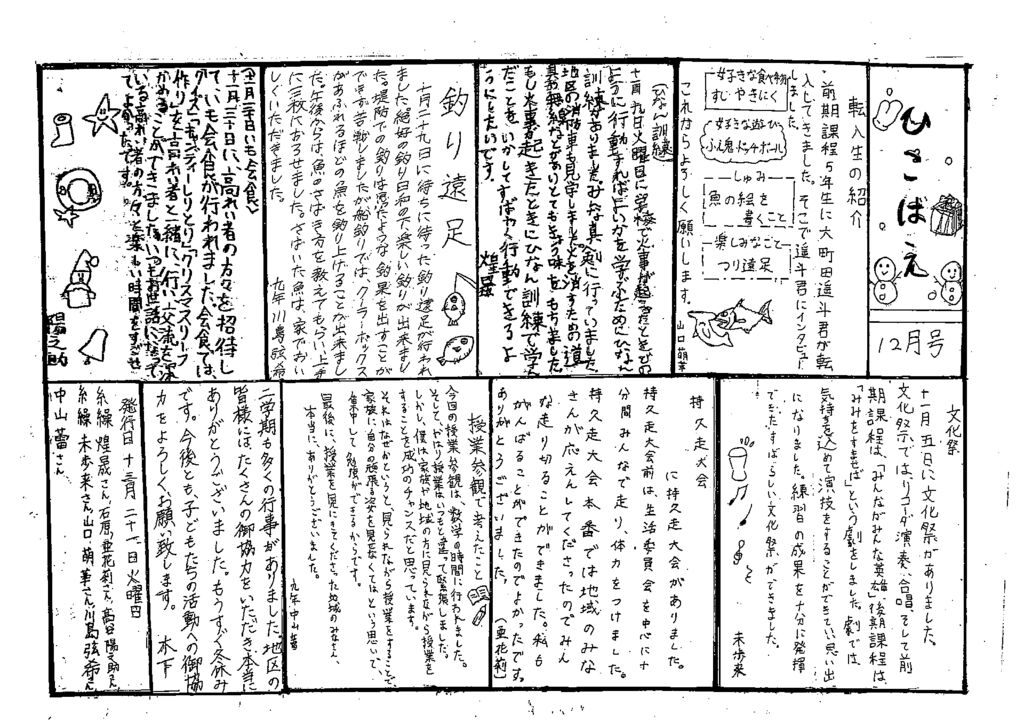 ひこばえ
12月号
転入生の紹介
前期課程5年生に大町田遥斗君が転
入してきました。そこで遥斗君にインタビュー
しました。
好きな食べ物
すし やきにく
好きな遊び
ふえ鬼 ドッチボール
しゅみ
魚の絵を
書くこと
楽しみなこと
つり遠足
これからよろしく願いします。
山口萌華
(ひなん訓練)
十一月九日火曜日に学校で火事が起こるとどの
ように行動すればいいかを学ぶためにひなん
訓練がありました。みんな真剣に行っていました。
もし火事が起きたときにひなん訓練で学ん
だことをいかしてすばやく行動できるよ
うにしたいです。
煌晟
釣り遠足
十月二十九日に待ちに待った釣り遠足が行われ
ました。絶好の釣り日和の下、楽しい釣りが出来まし
た。堤防での釣りは思ったような釣果を出すことが
できず苦戦しましたが船釣りでは、クーラーボックス
があふれるほどの魚を釣り上げることが出来まし
た。午後からは魚のさばき方を教えてもらい上手
に三枚におろせました。さばいた魚は、家でおい
しくいただきました。
九年 川島弦希
〈十一月二十日いも会食〉
十一月二十日に、高れい者の方々を招待し
て、いも会食が行われました。会食では、
クイズ
作りを高れい者と一緒に行い、交流を深
かめることができました。いつもお世話になって
いる高れい者の方々と楽しい時間をすごせ
てよかったです。
陽之助
文化祭
十一月五日に文化祭がありました。
文化祭では、リコーダー演奏、合唱、そして前
期課程は、「みんながみんな英雄」後期課程は
「みみをすませば」という劇をしました。劇では、
気持ちを込めて演技をすることができていい思い出
になりました。練習の成果を十分に発揮
できたすばらしい文化祭ができました。
未歩来
持久走大会
に持久走大会がありました。
持久走大会前は、生活委員会を中心に十
分間みんなで走り、体力をつけました。
持久走大会本番では地域のみな
さんが応えんしてくださったのでみん
な走り切ることができました。私も
がんばることができたのでよかったです。
ありがとうございました。
(亜花莉)
授業参観で考えたこと
今回の授業参観は、数学の時間に行われました。
そして、やはり授業は、いつもと違って緊張しました。
しかし、僕は、家族や地域の方に見られながら授業を
することを成功のチャンスだと思っています。
それはなぜかというと、見られながら授業をすることで、
家族に自分の頑張る姿を見せなくてはという思いで、
集中して勉強ができるからです。
最後に、授業を見にきてくださった地域のみなさん、
本当に、ありがとうございました。
九年 中山蕾
二学期も多くの行事がありました。地区の
皆様にはたくさんの御協力をいただき本当に
ありがとうございました。もうすぐ冬休み
です。今後とも、子どもたちの活動への御協
力をよろしくお願い致します。
木下
発行日 十二月 二十一日 火曜日
糸繰 煌晟さん、石原 亜花莉さん、高谷 陽之助さん
糸繰 未歩来さん、山口 萌華さん、川島 弦希さん
中山 蕾さん